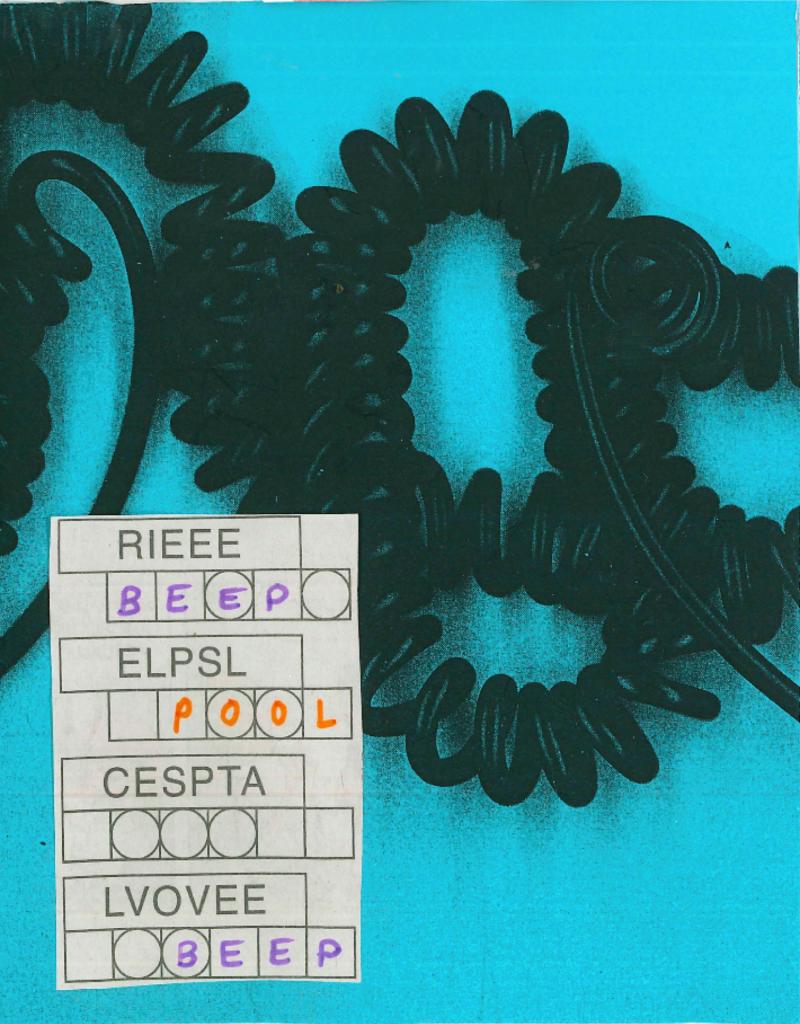 RIEEE
BEEP
ELPSL
POOL
CESPTA
LVOVEE
BEEP